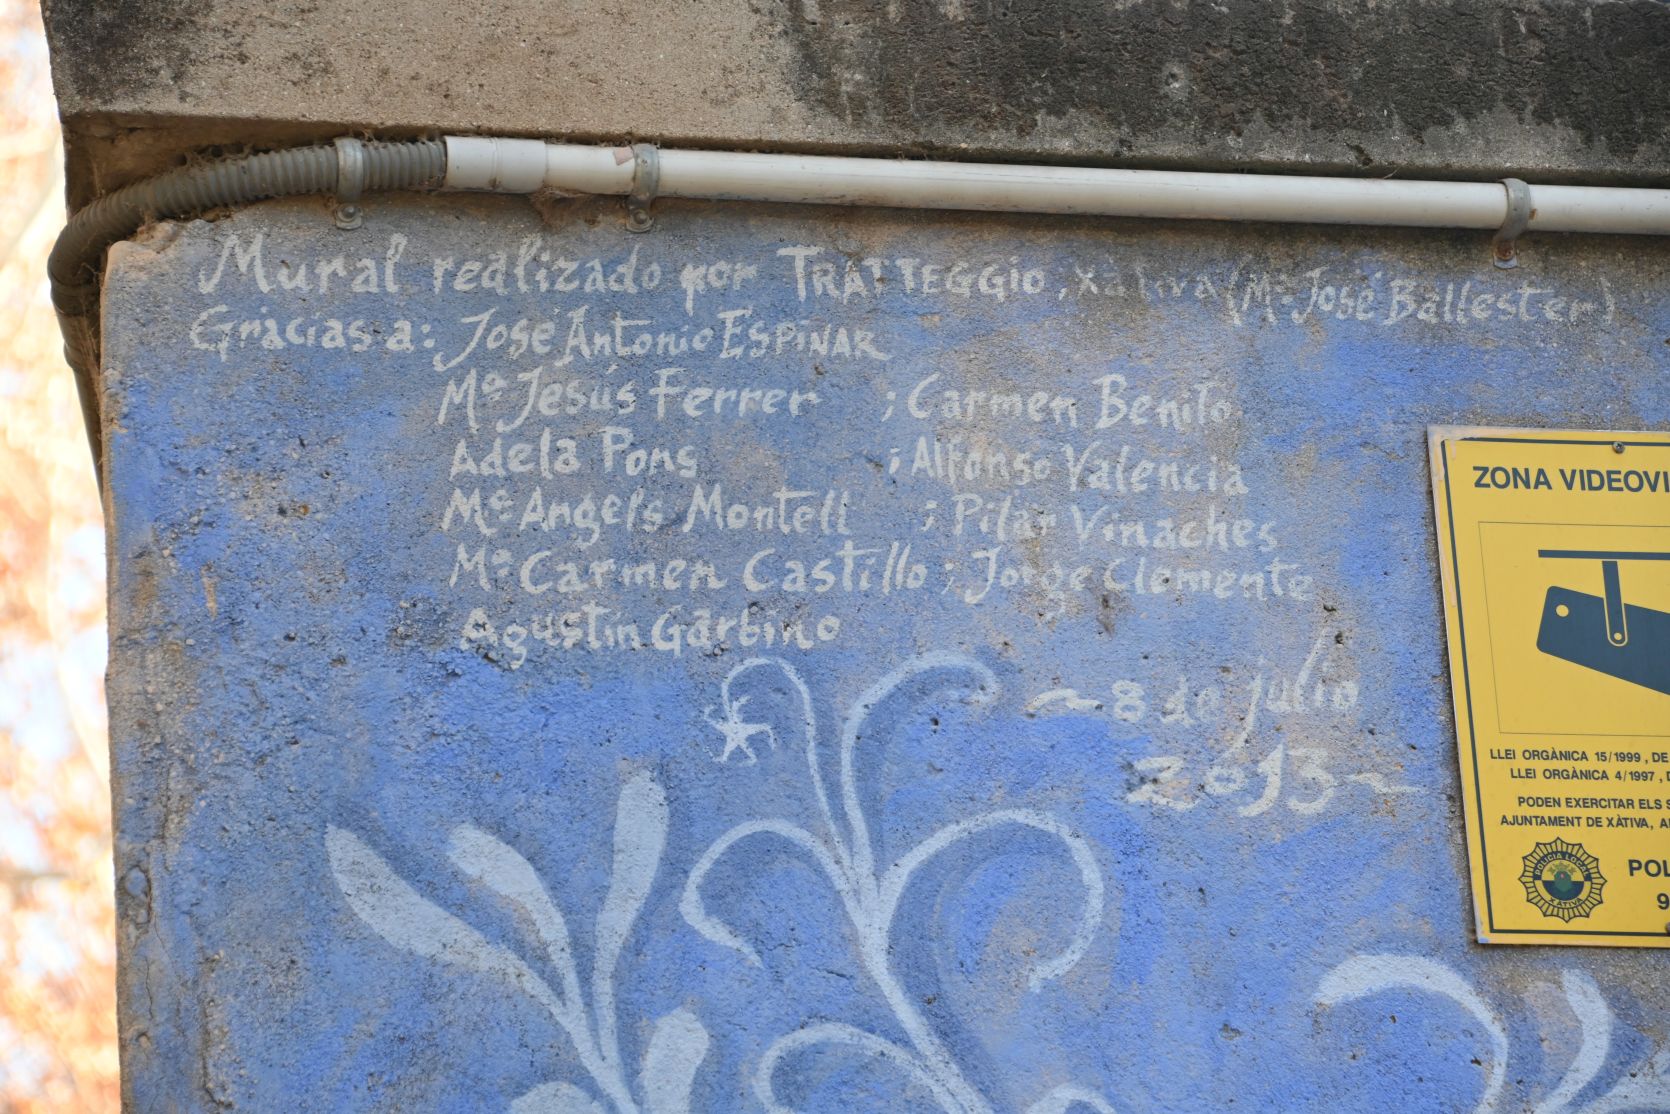 Mural realizado por TRATTEGGIO; Xàtiva (Mª José Ballester)
Gracias a: José Antonio ESPINAR
Mª Jesús Ferrer ; Carmen Benito
Adela Pons ; Alfonso Valencia
Mª Angels Montell ; Pilar Vinaches
Mª Carmen Castillo ; Jorge Clemente
Agustín Garbino
~8 de julio
2013~
ZONA VIDEOVI
LLEI ORGÀNICA 15/1999, DE
LLEI ORGÀNICA 4/1997,
PODEN EXERCITAR ELS
AJUNTAMENT DE XÀTIVA,
POLICIA LOCAL
XÀTIVA
POL
9